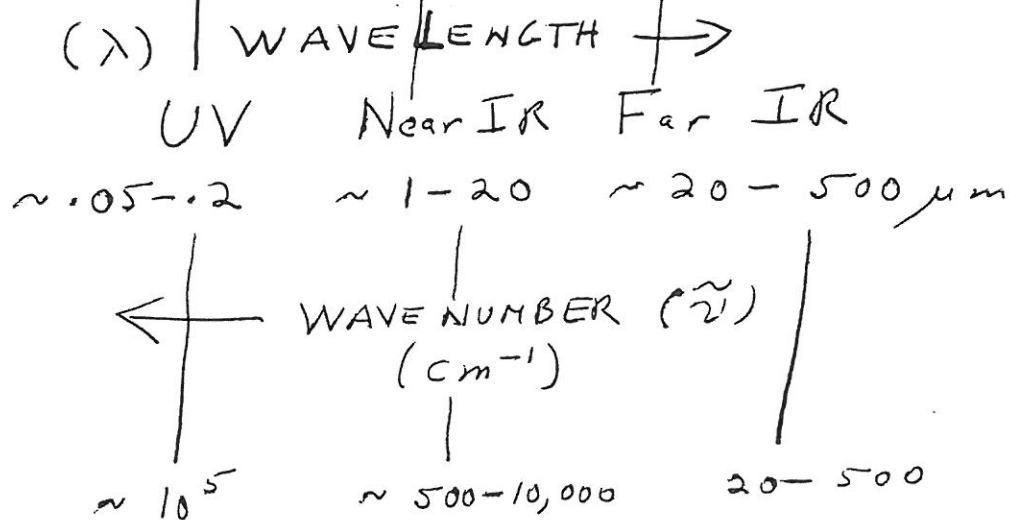 (λ) WAVELENGTH →
UV Near IR Far IR
~.05-.2 ~ 1-20 ~ 20-500 μm
← WAVE NUMBER (ν̃)
(cm⁻¹)
~ 10⁵ ~ 500-10,000 20-500